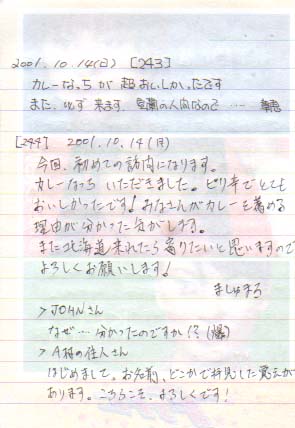 2001.10.14(日) [243]
カレーなっちが超おいしかったです
また、必ず来ます。室蘭の人間なので……
[244] 2001.10.14(日)
今回、初めての訪問になります。
カレーなっちいただきました。ピリ辛でとても
おいしかったです!みなさんがカレーを薦める
理由が分かった気がします。
また北海道来れたら寄りたいと思いますので
よろしくお願いします!
ましゅまろ
>JOHNさん
なぜ…分かったのですか!?(爆)
>A型の住人さん
はじめまして。お名前、どこかで拝見した覚えが
あります。こちらこそ、よろしくです!